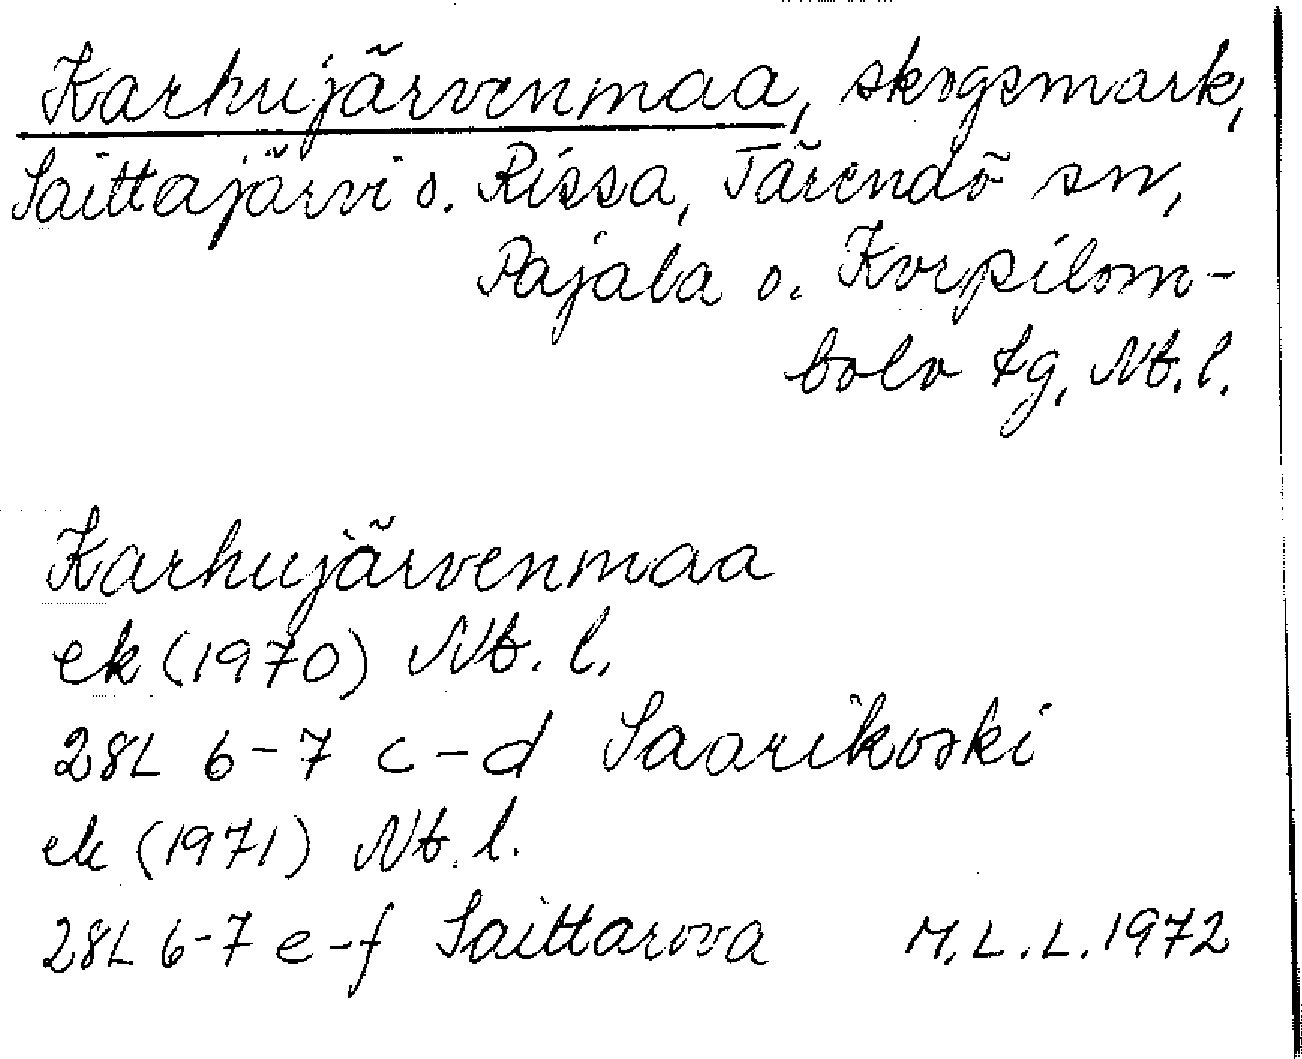 Karhujärvenmaa, skogsmark,
Saittajärvi o. Rissa, Tärendö sn,
Pajala o. Korpilom-
bolo tg, Nb. l.
Karhujärvenmaa
ek (1970) Nb. l.
28L 6-7 c-d Saarikoski
ek (1971) Nb. l.
28L 6-7 e-f Saittarova M.L.L. 1972